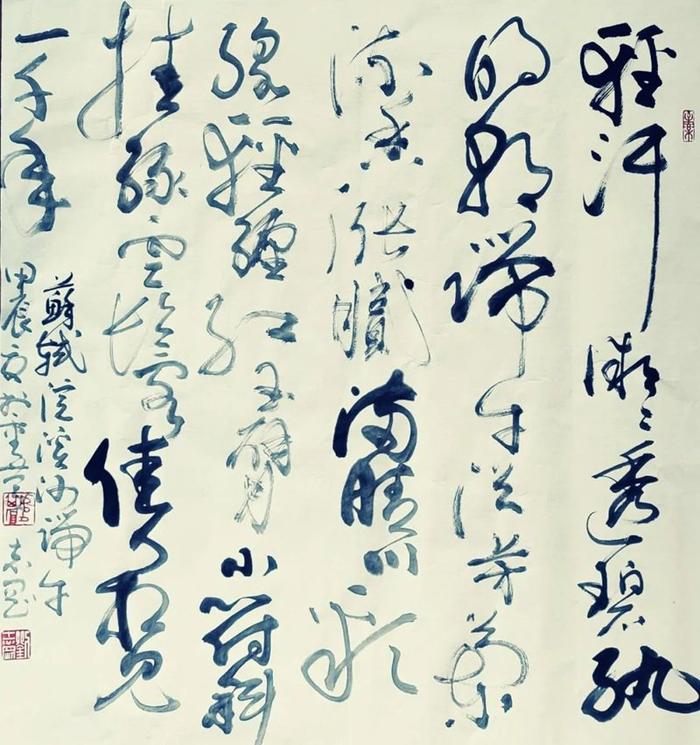 輕汗微微透碧紈
明朝端午浴芳蘭
流香漲膩滿晴川彩
線輕纏紅玉臂小符斜
掛綠雲鬟佳人相見
一千年
蘇軾浣溪沙端午
甲辰夏於